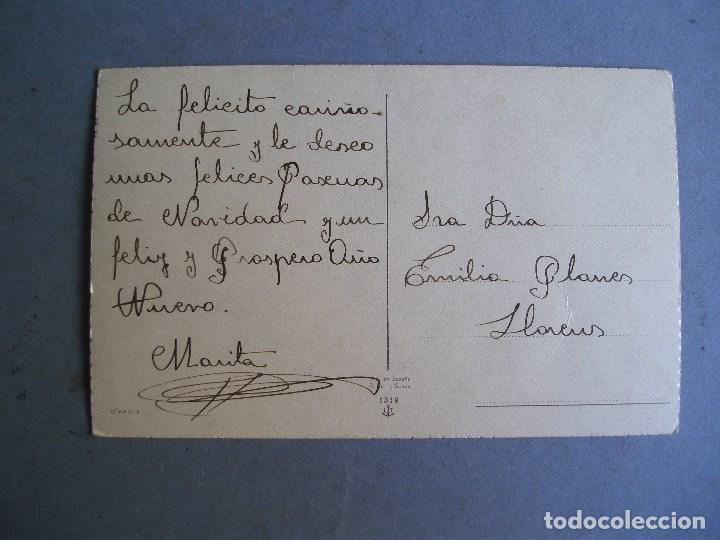 La felicito cariño-
samente y le deseo
unas felices Pascuas
de Navidad y un
feliz y Prospero Año
Nuevo.
Marita
Sra Dña
Emilia Planes
Llorens
1319
todocoleccion.net